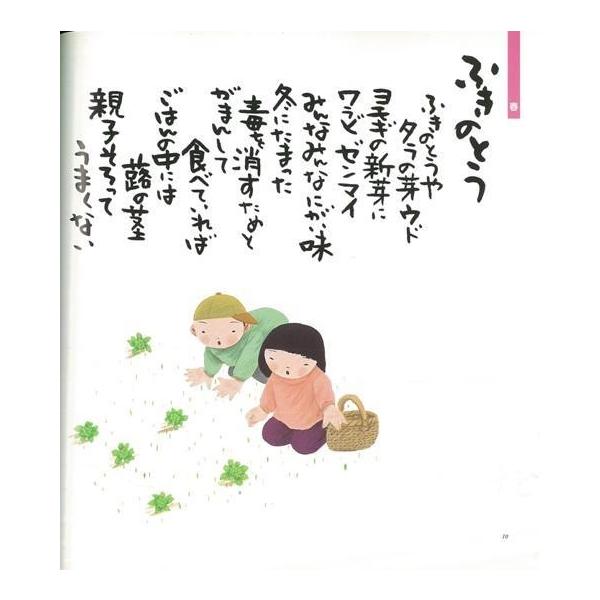 春
ふきのとう
ふきのとうや
タラの芽ウド
ヨモギの新芽に
ワラビゼンマイ
みんなみんなにがい味
冬にたまった
毒を消すためと
がまんして
食べていれば
ごはんの中には
蕗の茎
親子そろって
うまくない
10